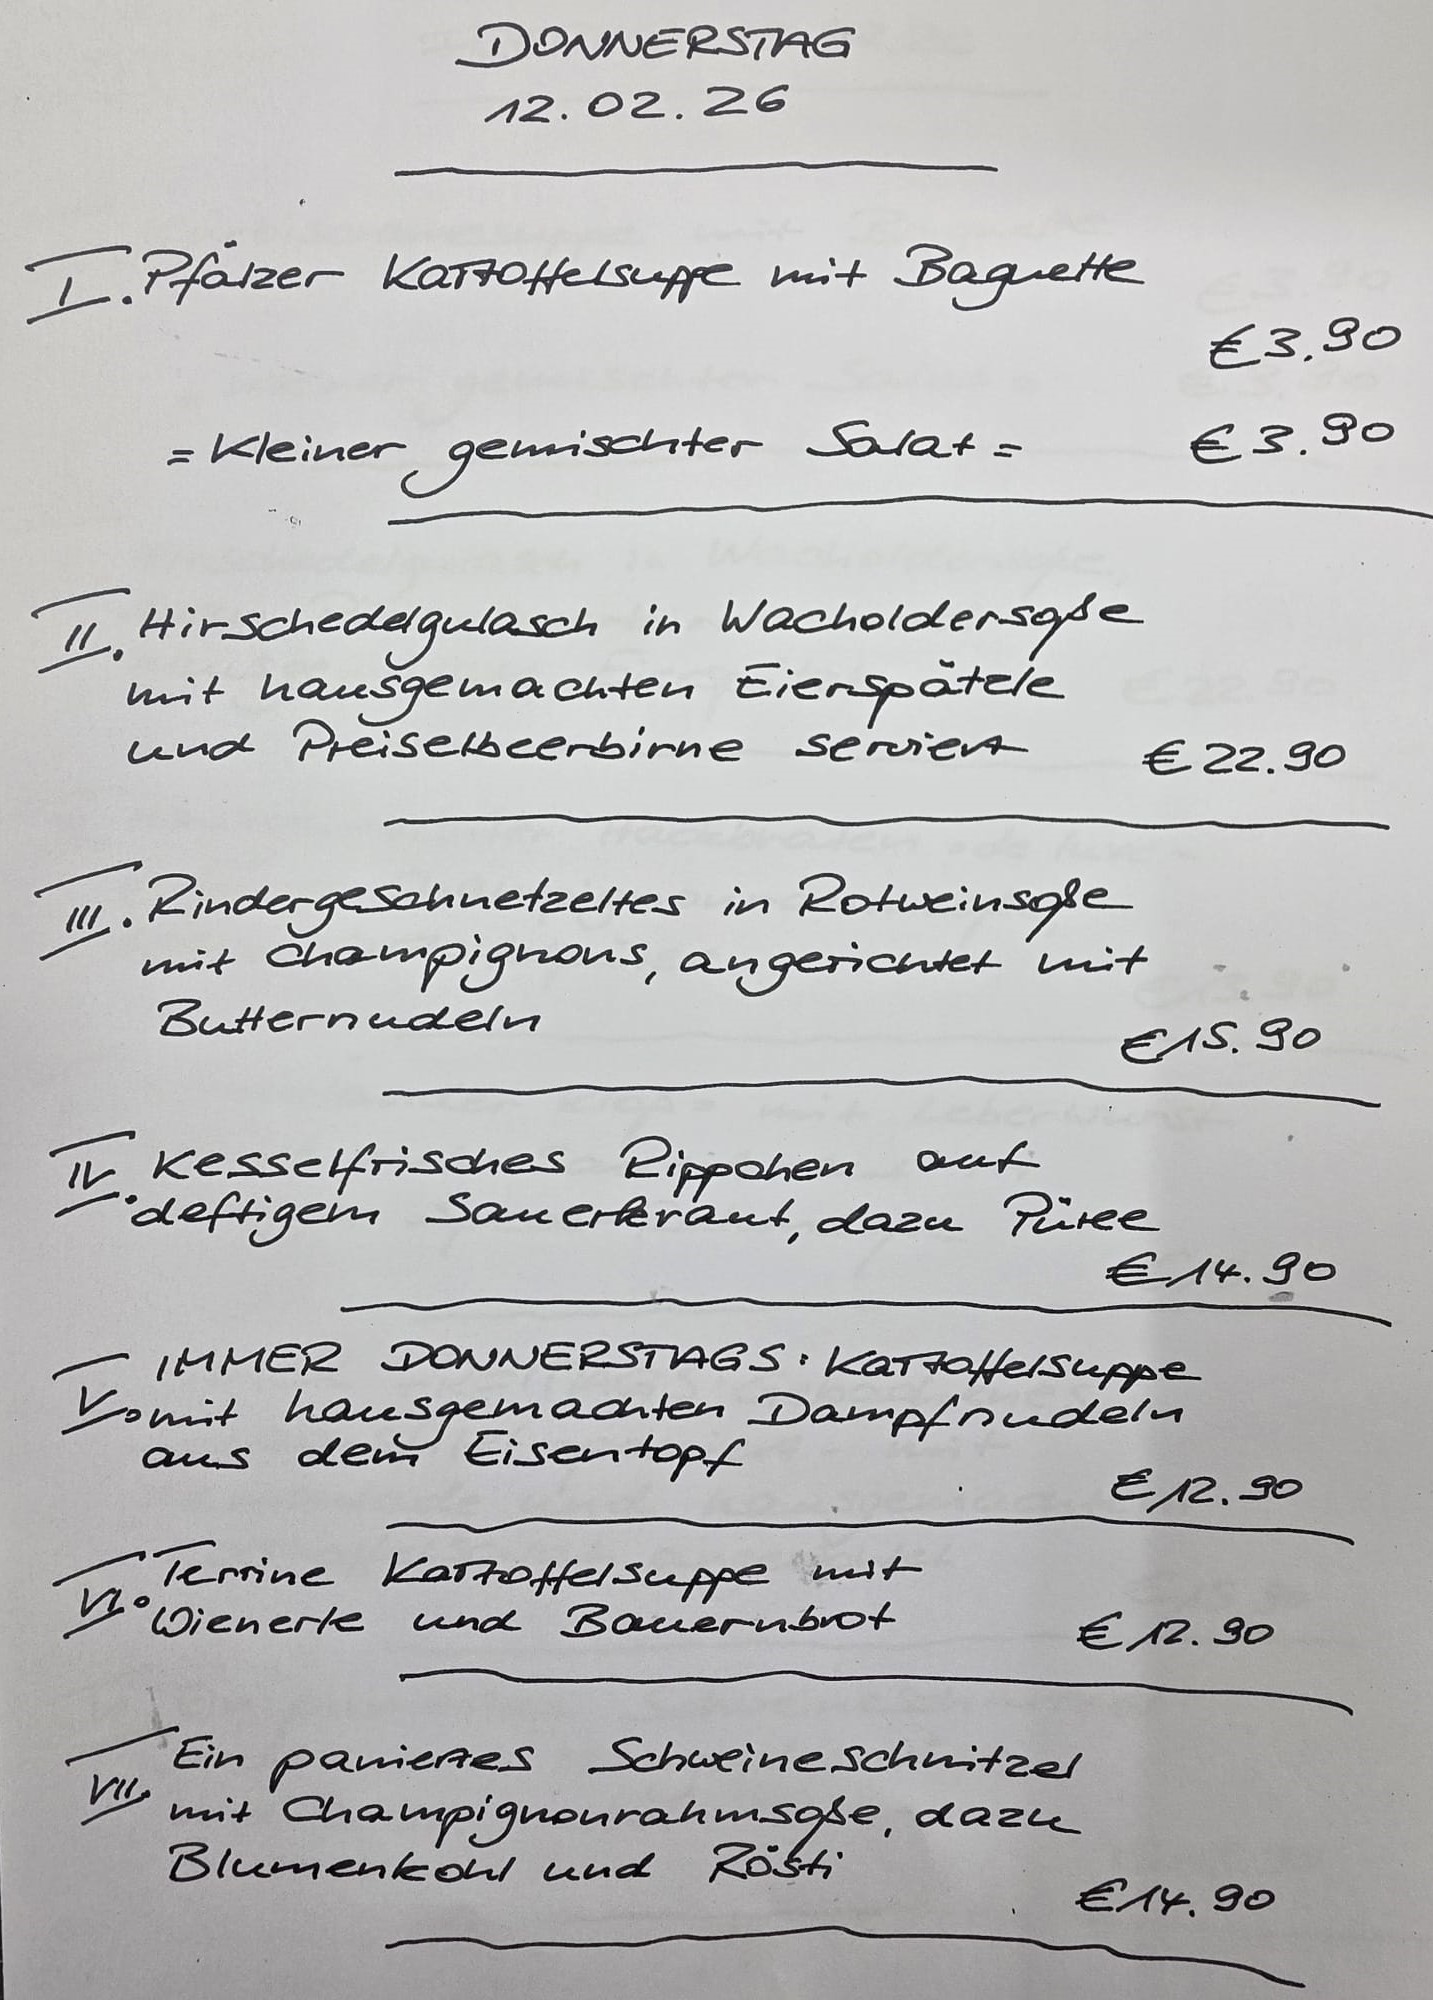 DONNERSTAG
12.02.26
I. Pfälzer Kartoffelsuppe mit Baguette
€3.90
= Kleiner gemischter Salat = €3.90
II. Hirschedelgulasch in Wacholdersoße
mit hausgemachten Eierspätzle
und Preiselbeerbirne serviert €22.90
III. Rindergeschnetzeltes in Rotweinsoße
mit Champignons, angerichtet mit
Butternudeln
€15.90
IV. Kesselfrisches Rippchen auf
deftigem Sauerkraut, dazu Püree
€14.90
V. IMMER DONNERSTAGS: Kartoffelsuppe
mit hausgemachten Dampfnudeln
aus dem Eisentopf
€12.90
VI. Terrine Kartoffelsuppe mit
Wienerle und Bauernbrot €12.90
VII. Ein paniertes Schweineschnitzel
mit Champignonrahmsoße, dazu
Blumenkohl und Rösti
€14.90